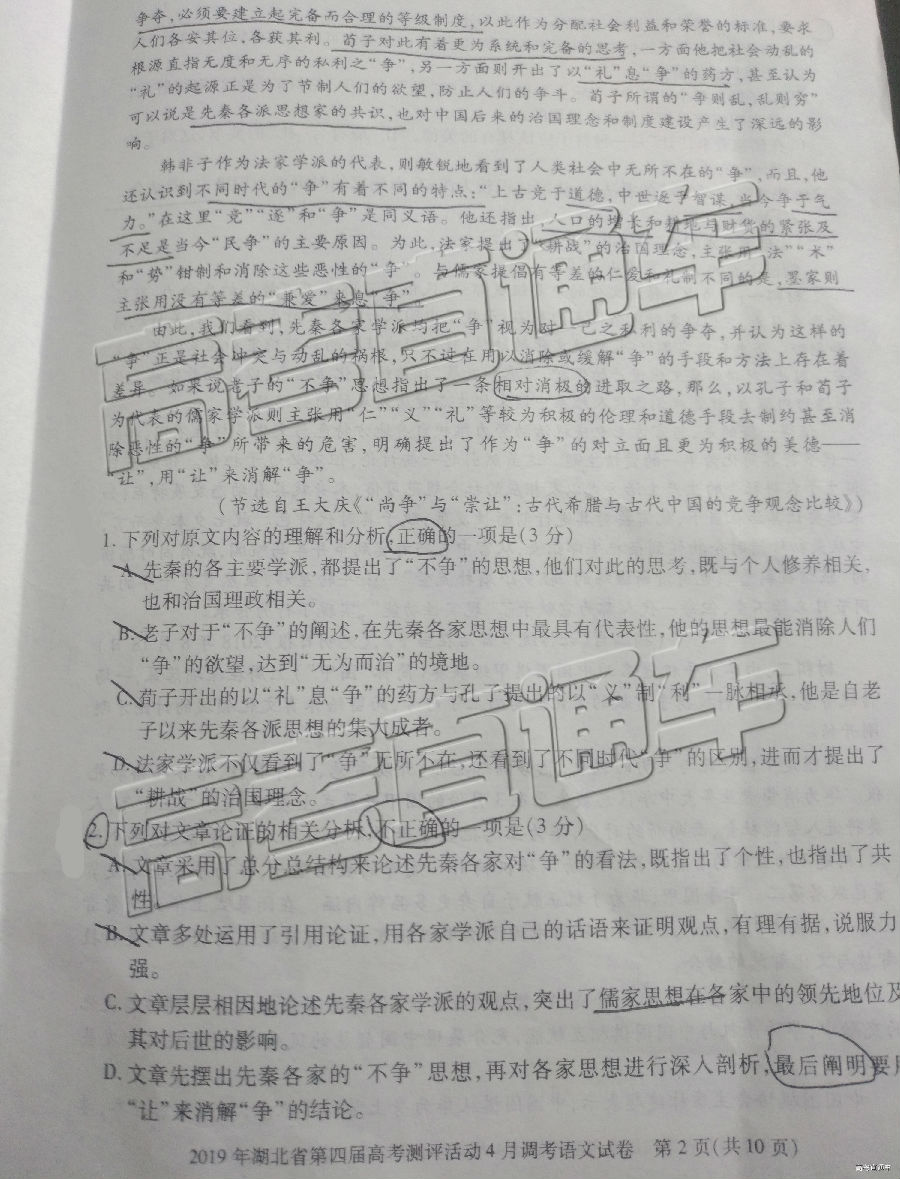 争夺,必须要建立起完备而合理的等级制度,以此作为分配社会利益和荣誉的标准,要求
人们各安其位,各获其利。荀子对此有着更为系统和完备的思考,一方面他把社会动乱的
根源直指无度和无序的私利之“争”,另一方面则开出了以“礼”息“争”的药方,甚至认为
“礼”的起源正是为了节制人们的欲望,防止人们的争斗。荀子所谓的“争则乱,乱则穷”
可以说是先秦各派思想家的共识,也对中国后来的治国理念和制度建设产生了深远的影
响。
韩非子作为法家学派的代表,则敏锐地看到了人类社会中无所不在的“争”,而且,他
还认识到不同时代的“争”有着不同的特点:“上古竞于道德,中世逐于智谋,当今争于气
力。”在这里“竞”“逐”和“争”是同义语。他还指出,人口的增长和耕地与财货的紧张及
不足是当今“民争”的主要原因。为此,法家提出了“耕战”的治国理念,主张用“法”“术”
和“势”钳制和消除这些恶性的“争”。与儒家提倡有等差的仁爱和礼制不同的是,墨家则
主张用没有等差的“兼爱”来息“争”。
由此,我们看到,先秦各家学派均把“争”视为对一己之私利的争夺,并认为这样的
“争”正是社会冲突与动乱的祸根,只不过在用以消除或缓解“争”的手段和方法上存在着
差异。如果说老子的“不争”思想指出了一条相对消极的进取之路,那么,以孔子和荀子
为代表的儒家学派则主张用“仁”“义”“礼”等较为积极的伦理和道德手段去制约甚至消
除恶性的“争”所带来的危害,明确提出了作为“争”的对立面且更为积极的美德——
“让”,用“让”来消解“争”。
(节选自王大庆《“尚争”与“崇让”:古代希腊与古代中国的竞争观念比较》)
1.下列对原文内容的理解和分析,正确的一项是(3分)
A.先秦的各主要学派,都提出了“不争”的思想,他们对此的思考,既与个人修养相关,
也和治国理政相关。
B.老子对于“不争”的阐述,在先秦各家思想中最具有代表性,他的思想最能消除人们
“争”的欲望,达到“无为而治”的境地。
C.荀子开出的以“礼”息“争”的药方与孔子提出的以“义”制“利”一脉相承,他是自老
子以来先秦各派思想的集大成者。
D.法家学派不仅看到了“争”无所不在,还看到了不同时代“争”的区别,进而才提出了
“耕战”的治国理念。
2.下列对文章论证的相关分析,不正确的一项是(3分)
A.文章采用了总分总结构来论述先秦各家对“争”的看法,既指出了个性,也指出了共
性。
B.文章多处运用了引用论证,用各家学派自己的话语来证明观点,有理有据,说服力
强。
C.文章层层相因地论述先秦各家学派的观点,突出了儒家思想在各家中的领先地位及
其对后世的影响。
D.文章先摆出先秦各家的“不争”思想,再对各家思想进行深入剖析,最后阐明要用
“让”来消解“争”的结论。
2019年湖北省第四届高考测评活动4月调考语文试卷 第2页(共10页)
高考直通车
高考直通车
高考直通车